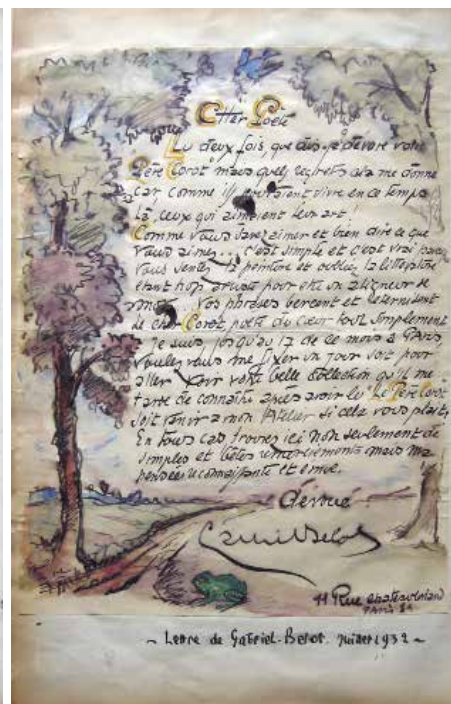 Cher Poète
Lu deux fois, que dis-je dévoré votre
Père Corot mais quels regrets cela me donne
car comme ils devraient vivre en ce temps
là, ceux qui aimaient leur art!
Comme vous savez aimer et bien dire ce que
vous aimez... c'est simple et c'est vrai parce
vous sentez la peinture et oubliez la littérature
étant trop artiste pour être un aligneur de
mots. Vos phrases bercent et
le cher Corot, poète du cœur tout simplement
Je suis jusqu'au 17 de ce mois à Paris,
voulez vous me fixer un jour soit pour
aller voir votre belle collection qu'il me
tarde de connaître après avoir lu le Père Corot
soit venir à mon Atelier si cela vous plait,
En tous cas trouvez ici non seulement de
simples et bêtes remerciements mais ma
pensée reconnaissante et émue.
dévoué
11 Rue Chateaubriand
PARIS 8e
~ Lettre de Gabriel-Belot. Juillet 1932 ~